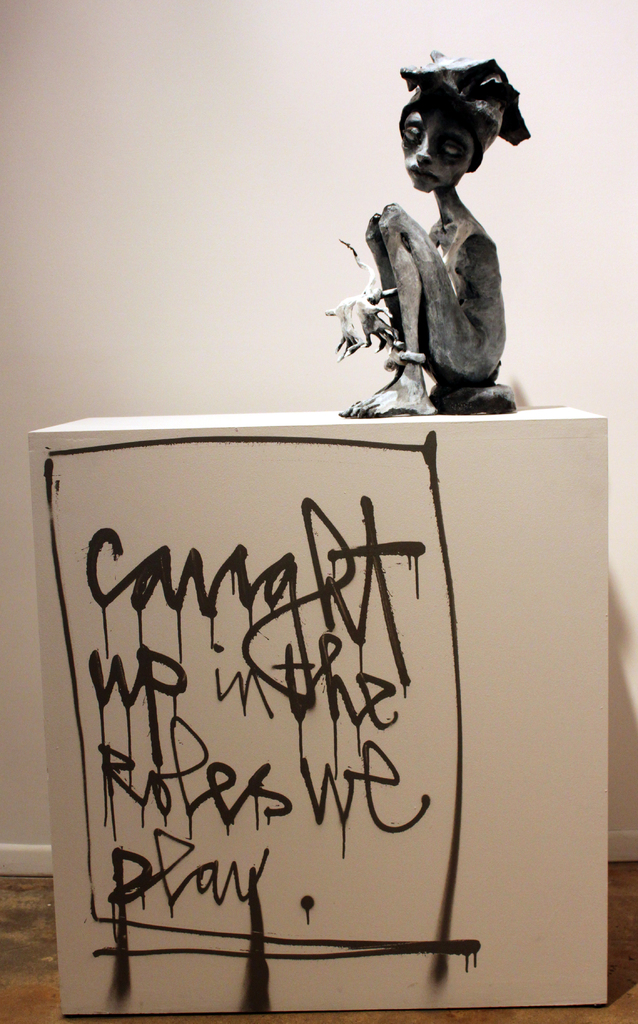 caught
up in the
Roles we
play.